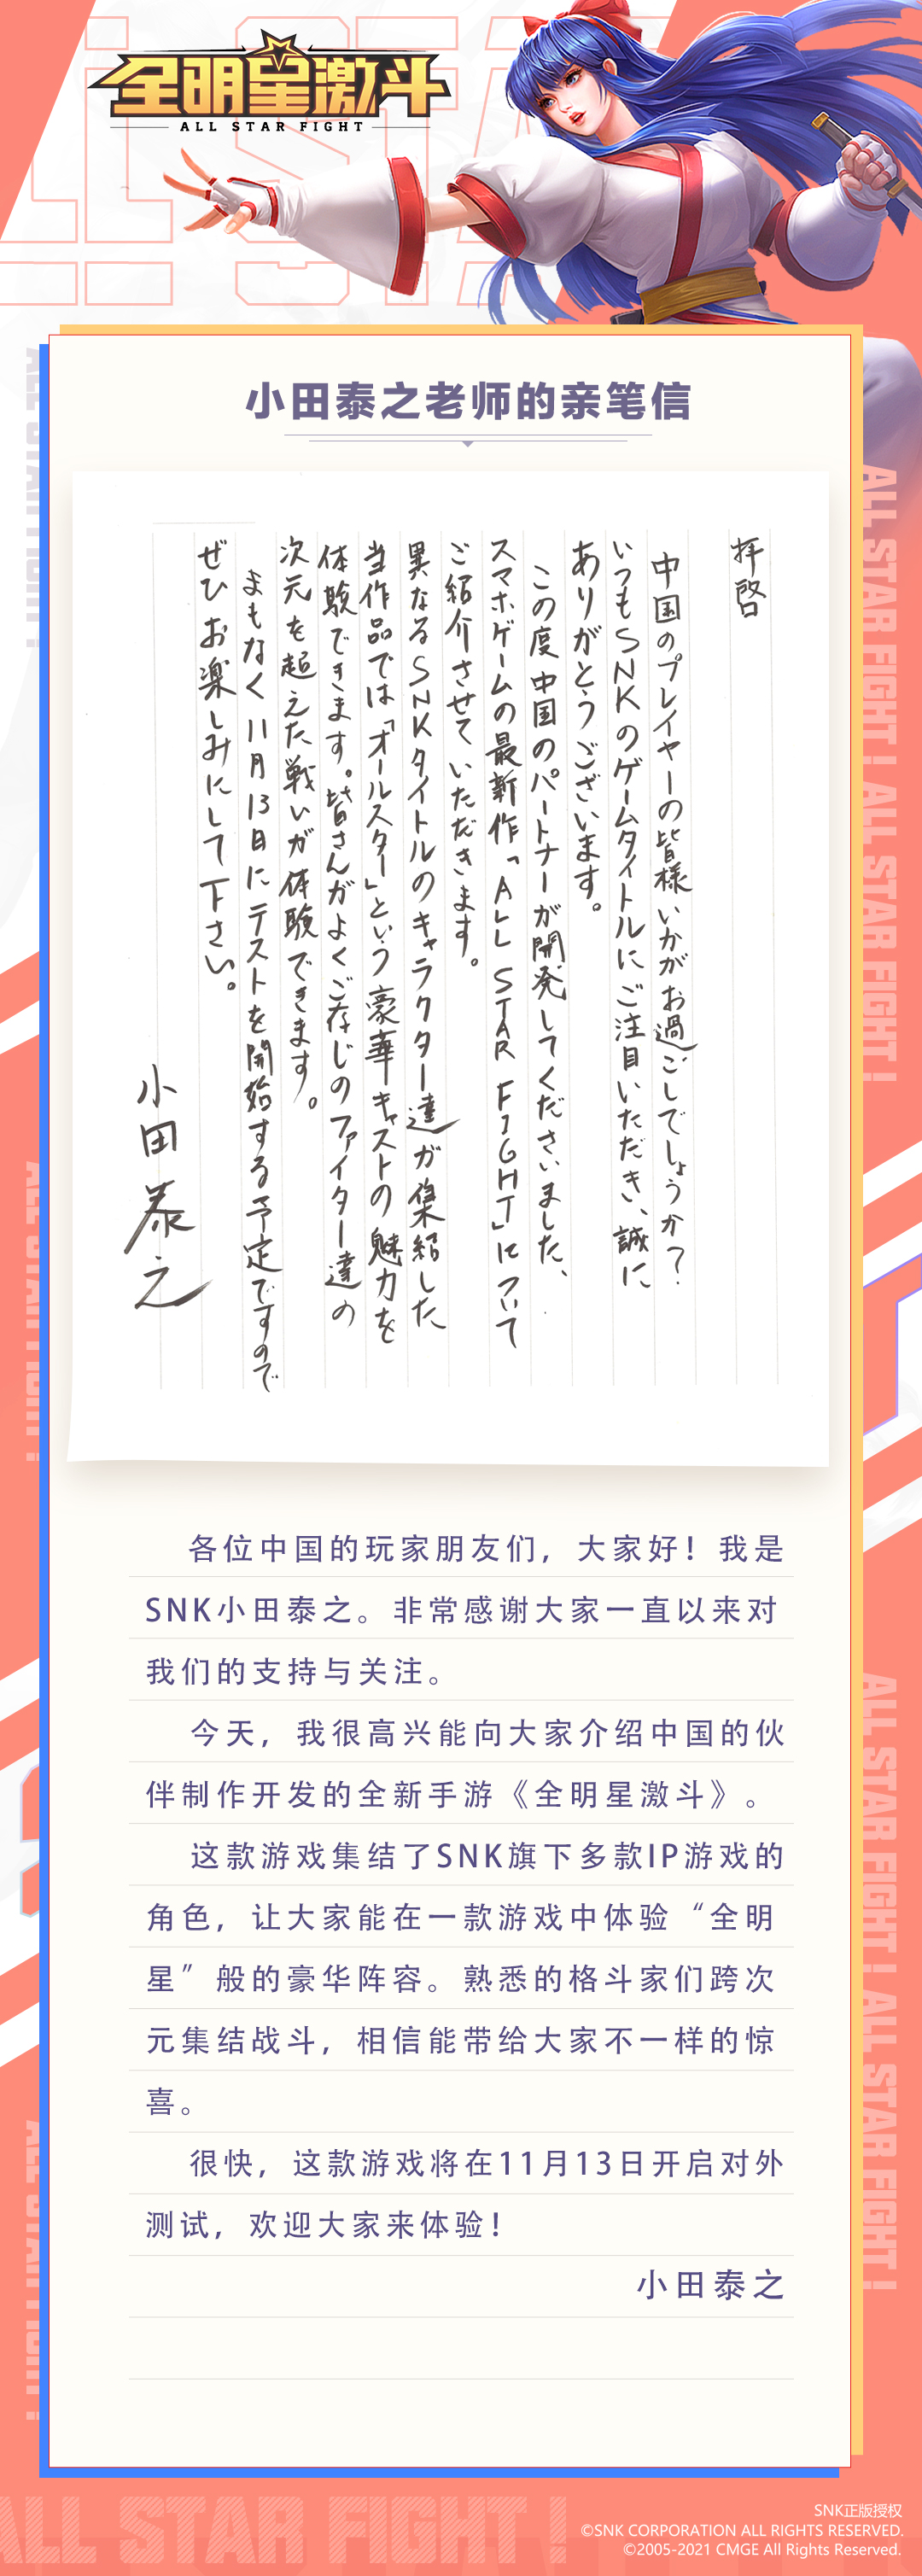 全明星激斗
ALL STAR FIGHT
小田泰之老师的亲笔信
拝啓
中国のプレイヤーの皆様いかがお過ごしでしょうか?
いつもSNKのゲームタイトルにご注目いただき、誠に
ありがとうございます。
この度中国のパートナーが開発してくださいました、
スマホゲームの最新作「ALL STAR FIGHT」について
ご紹介させていただきます。
異なるSNKタイトルのキャラクター達が集結した
当作品では「オールスター」という豪華キャストの魅力を
体験できます。皆さんがよくご存じのファイター達の
次元を超えた戦いが体験できます。
まもなく11月13日にテストを開始する予定ですので
ぜひお楽しみにして下さい。
小田泰之
各位中国的玩家朋友们，大家好！我是
SNK小田泰之。非常感谢大家一直以来对
我们的支持与关注。
今天，我很高兴能向大家介绍中国的伙
伴制作开发的全新手游《全明星激斗》。
这款游戏集结了SNK旗下多款IP游戏的
角色，让大家能在一款游戏中体验“全明
星”般的豪华阵容。熟悉的格斗家们跨次
元集结战斗，相信能带给大家不一样的惊
喜。
很快，这款游戏将在11月13日开启对外
测试，欢迎大家来体验！
小田泰之
ALL STAR FIGHT! ALL STAR FIGHT!
ALL STAR FIGHT! ALL STAR FIGHT!
ALL STAR FIGHT!
SNK正版授权
©SNK CORPORATION ALL RIGHTS RESERVED.
©2005-2021 CMGE All Rights Reserved.